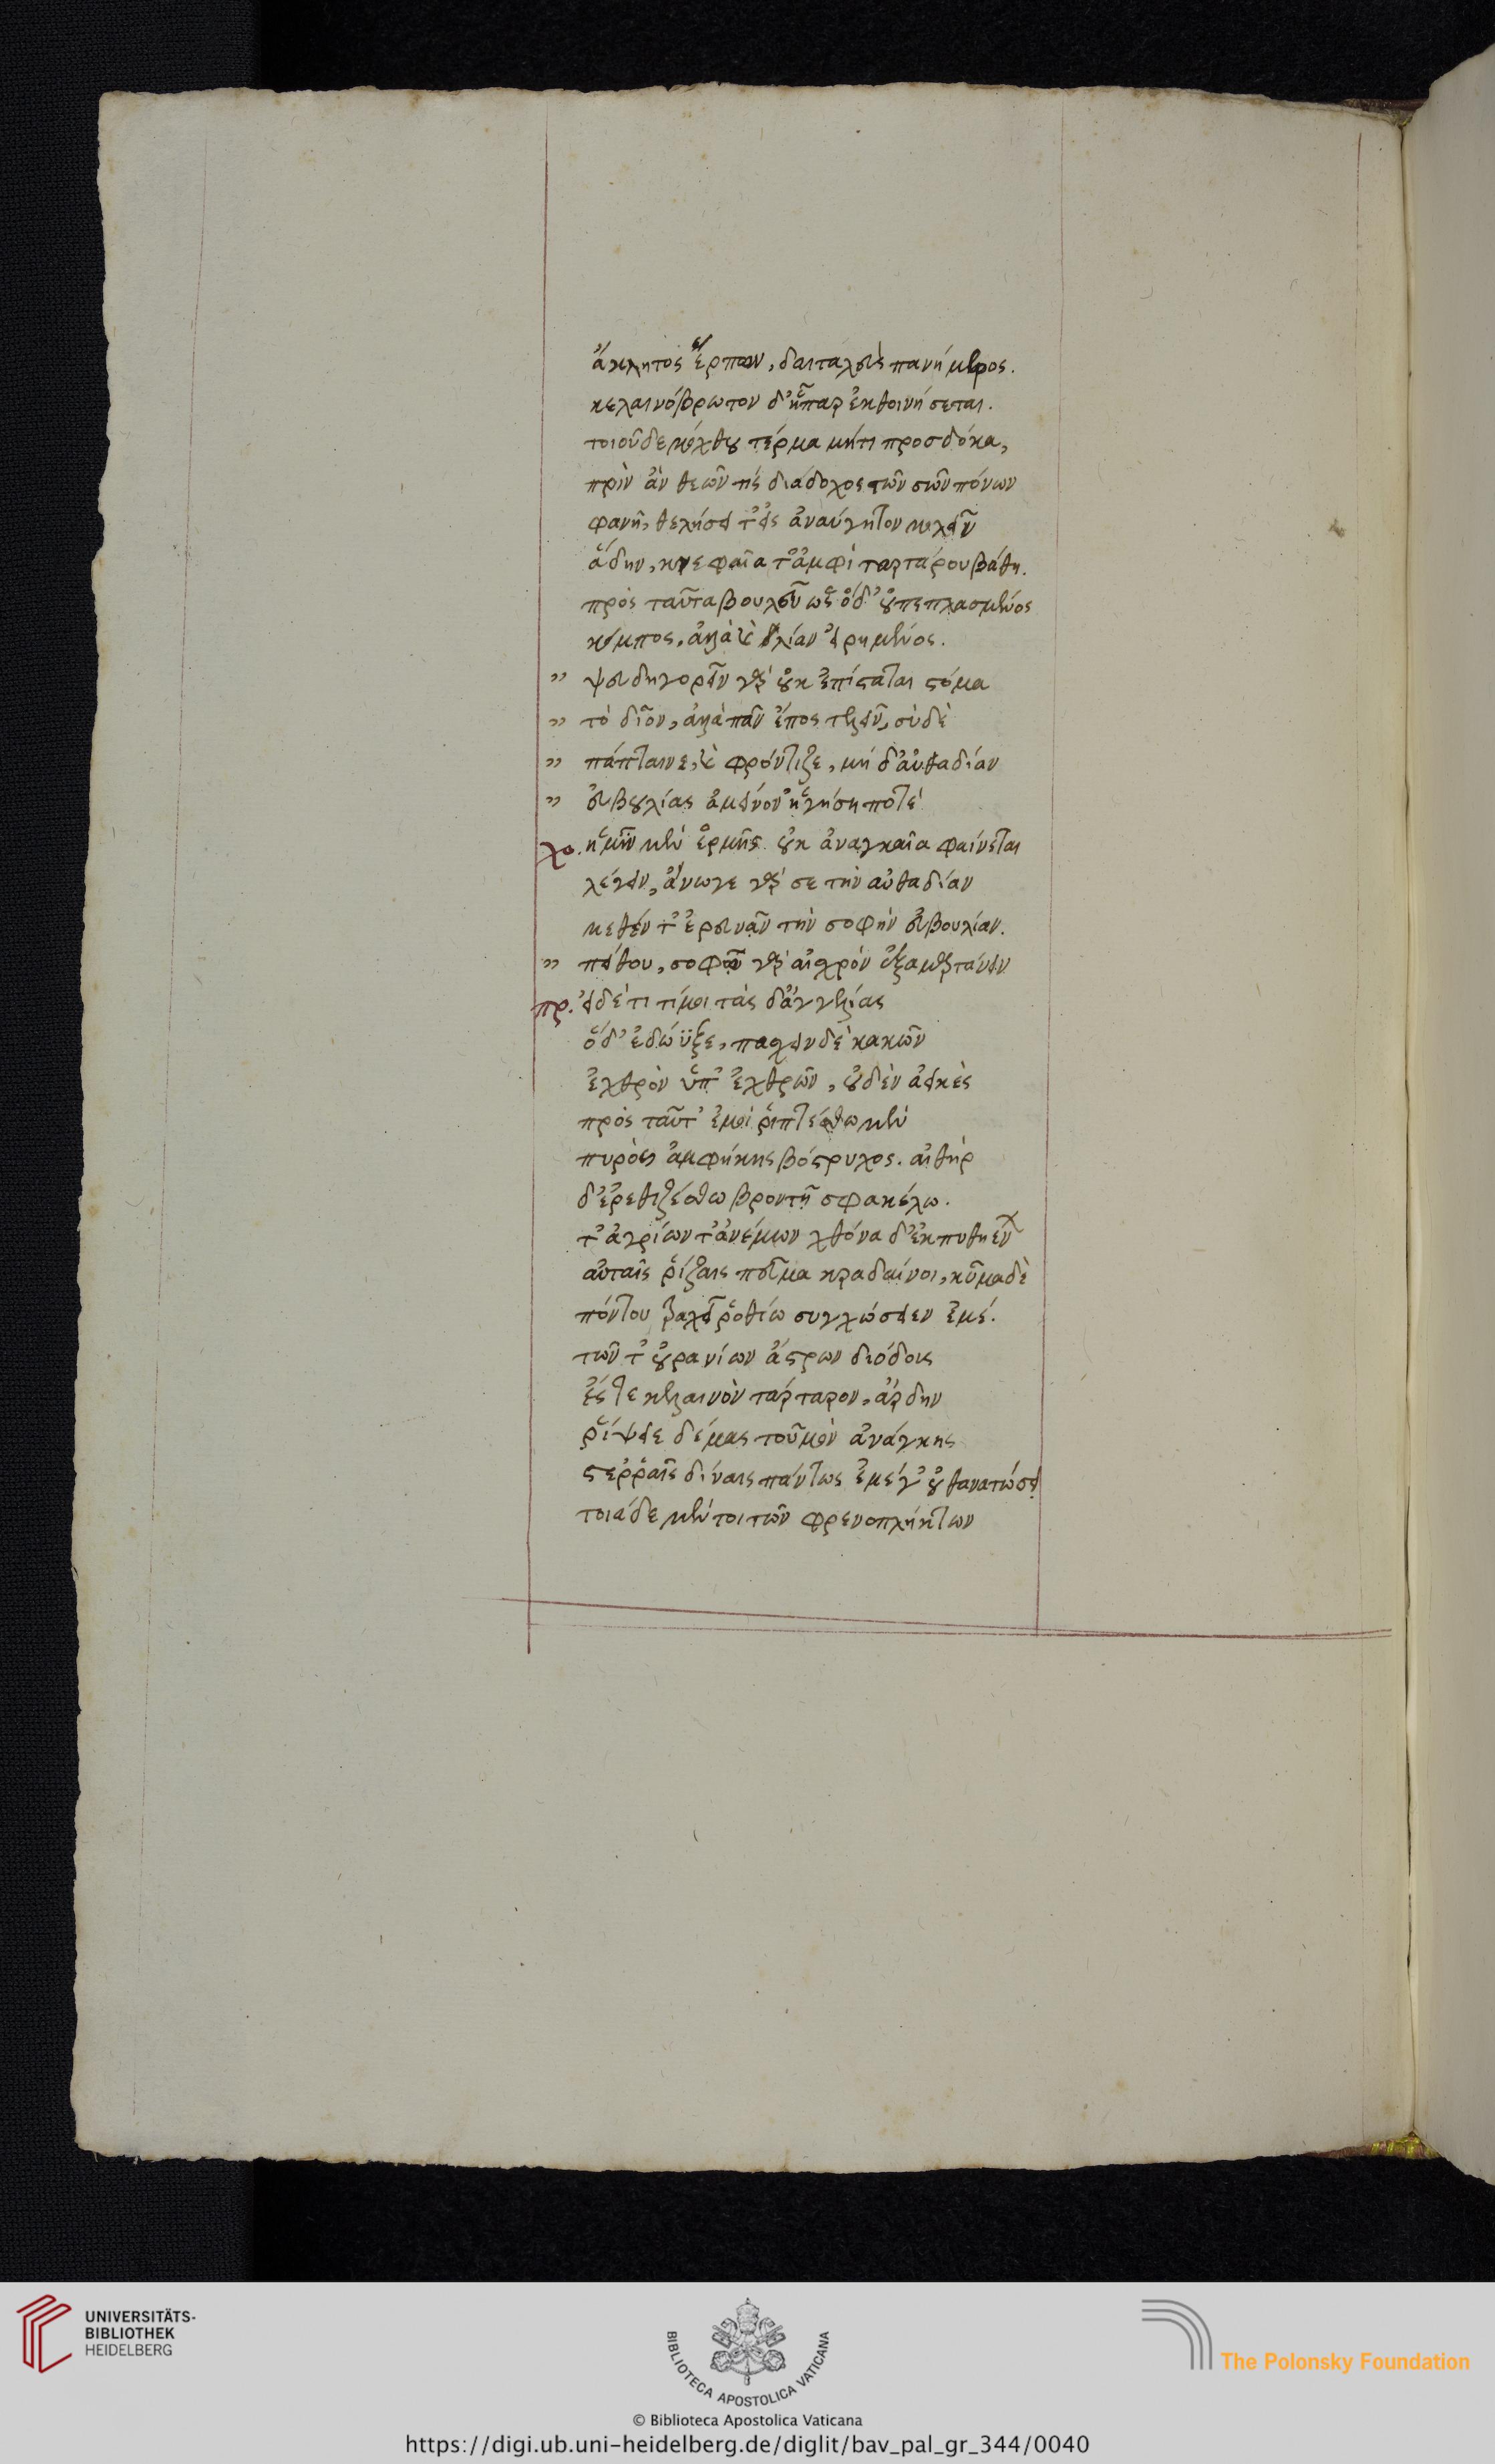 ἄκλητος ἕρπων, δαιταλεὺς πανήμερος.
κελαινόβρωτον δ' ἧπαρ ἐκθοινήσεται.
τοιοῦδε μόχθου τέρμα μήτι προσδόκα,
πρὶν ἂν θεῶν τίς διάδοχος τῶν σῶν πόνων
φανῆ, θελήσει τ' εἰς ἀναύγητον μολεῖν
ἅδην, κνεφαῖα τ' ἀμφὶ ταρτάρου βάθη.
πρὸς ταῦτα βουλεῦ ὡς ὅδ' οὐ πεπλασμένος
κόμπος, ἀλλὰ καὶ λίαν εἰρημένος.
" ψευδηγορεῖν γὰρ οὐκ ἐπίσταται στόμα
" τὸ δῖον, ἀλλὰ πᾶν ἔπος τελεῖν, σὺ δὲ
" πάπταινε, καὶ φρόντιζε, μὴ δ' αὐθαδίαν
" εὐβουλίας ἀμείνον' ἡγήση ποτέ
χο. ἡμῖν μὲν ἑρμῆς οὐκ ἀναγκαῖα φαίνεται
λέγειν, ἄνωγε γὰρ σε τὴν αὐθαδίαν
μεθέντ' ἐρευνᾶν τὴν σοφὴν εὐβουλίαν.
" πείθου, σοφῶ γὰρ αἰσχρὸν ἐξαμαρτάνειν
πρ. εἰδέτι τίμοι τὰς δ' ἀγγελίας
ὅδ' ἐθώϋξε, πάσχειν δὲ κακῶν
ἐχθρὸν ὑπ' ἐχθρῶν, οὐδὲν ἀεικὲς
πρὸς ταῦτ' ἐμοὶ ῥιπτέσθω μὲν
πυρὸς ἀμφήκης βόστρυχος. αἰθὴρ
δ' ἐρεθιζέσθω βροντῆ σφακέλω.
τ' ἀγρίων τ' ἀνέμων χθόνα δ' ἐκ πυθμέν
αὐταῖς ῥίζαις πνεῦμα κραδαίνοι, κῦμα δὲ
πόντου τραχεῖ ῥοθίω συγχώσειεν ἐμέ.
τῶν τ' οὐρανίων ἄστρων διόδοις
ἔς τε κελαινὸν τάρταρον, ἄρδην
ῥίψειε δέμας τοῦμὸν ἀνάγκης
στερραῖς δίναις πάντως ἐμέ γ' οὐ θανατώσει
τοιάδε μέν τοι τῶν φρενοπλήκτων
UNIVERSITÄTS-
BIBLIOTHEK
HEIDELBERG
BIBLIOTECA APOSTOLICA VATICANA
The Polonsky Foundation
© Biblioteca Apostolica Vaticana
https://digi.ub.uni-heidelberg.de/diglit/bav_pal_gr_344/0040